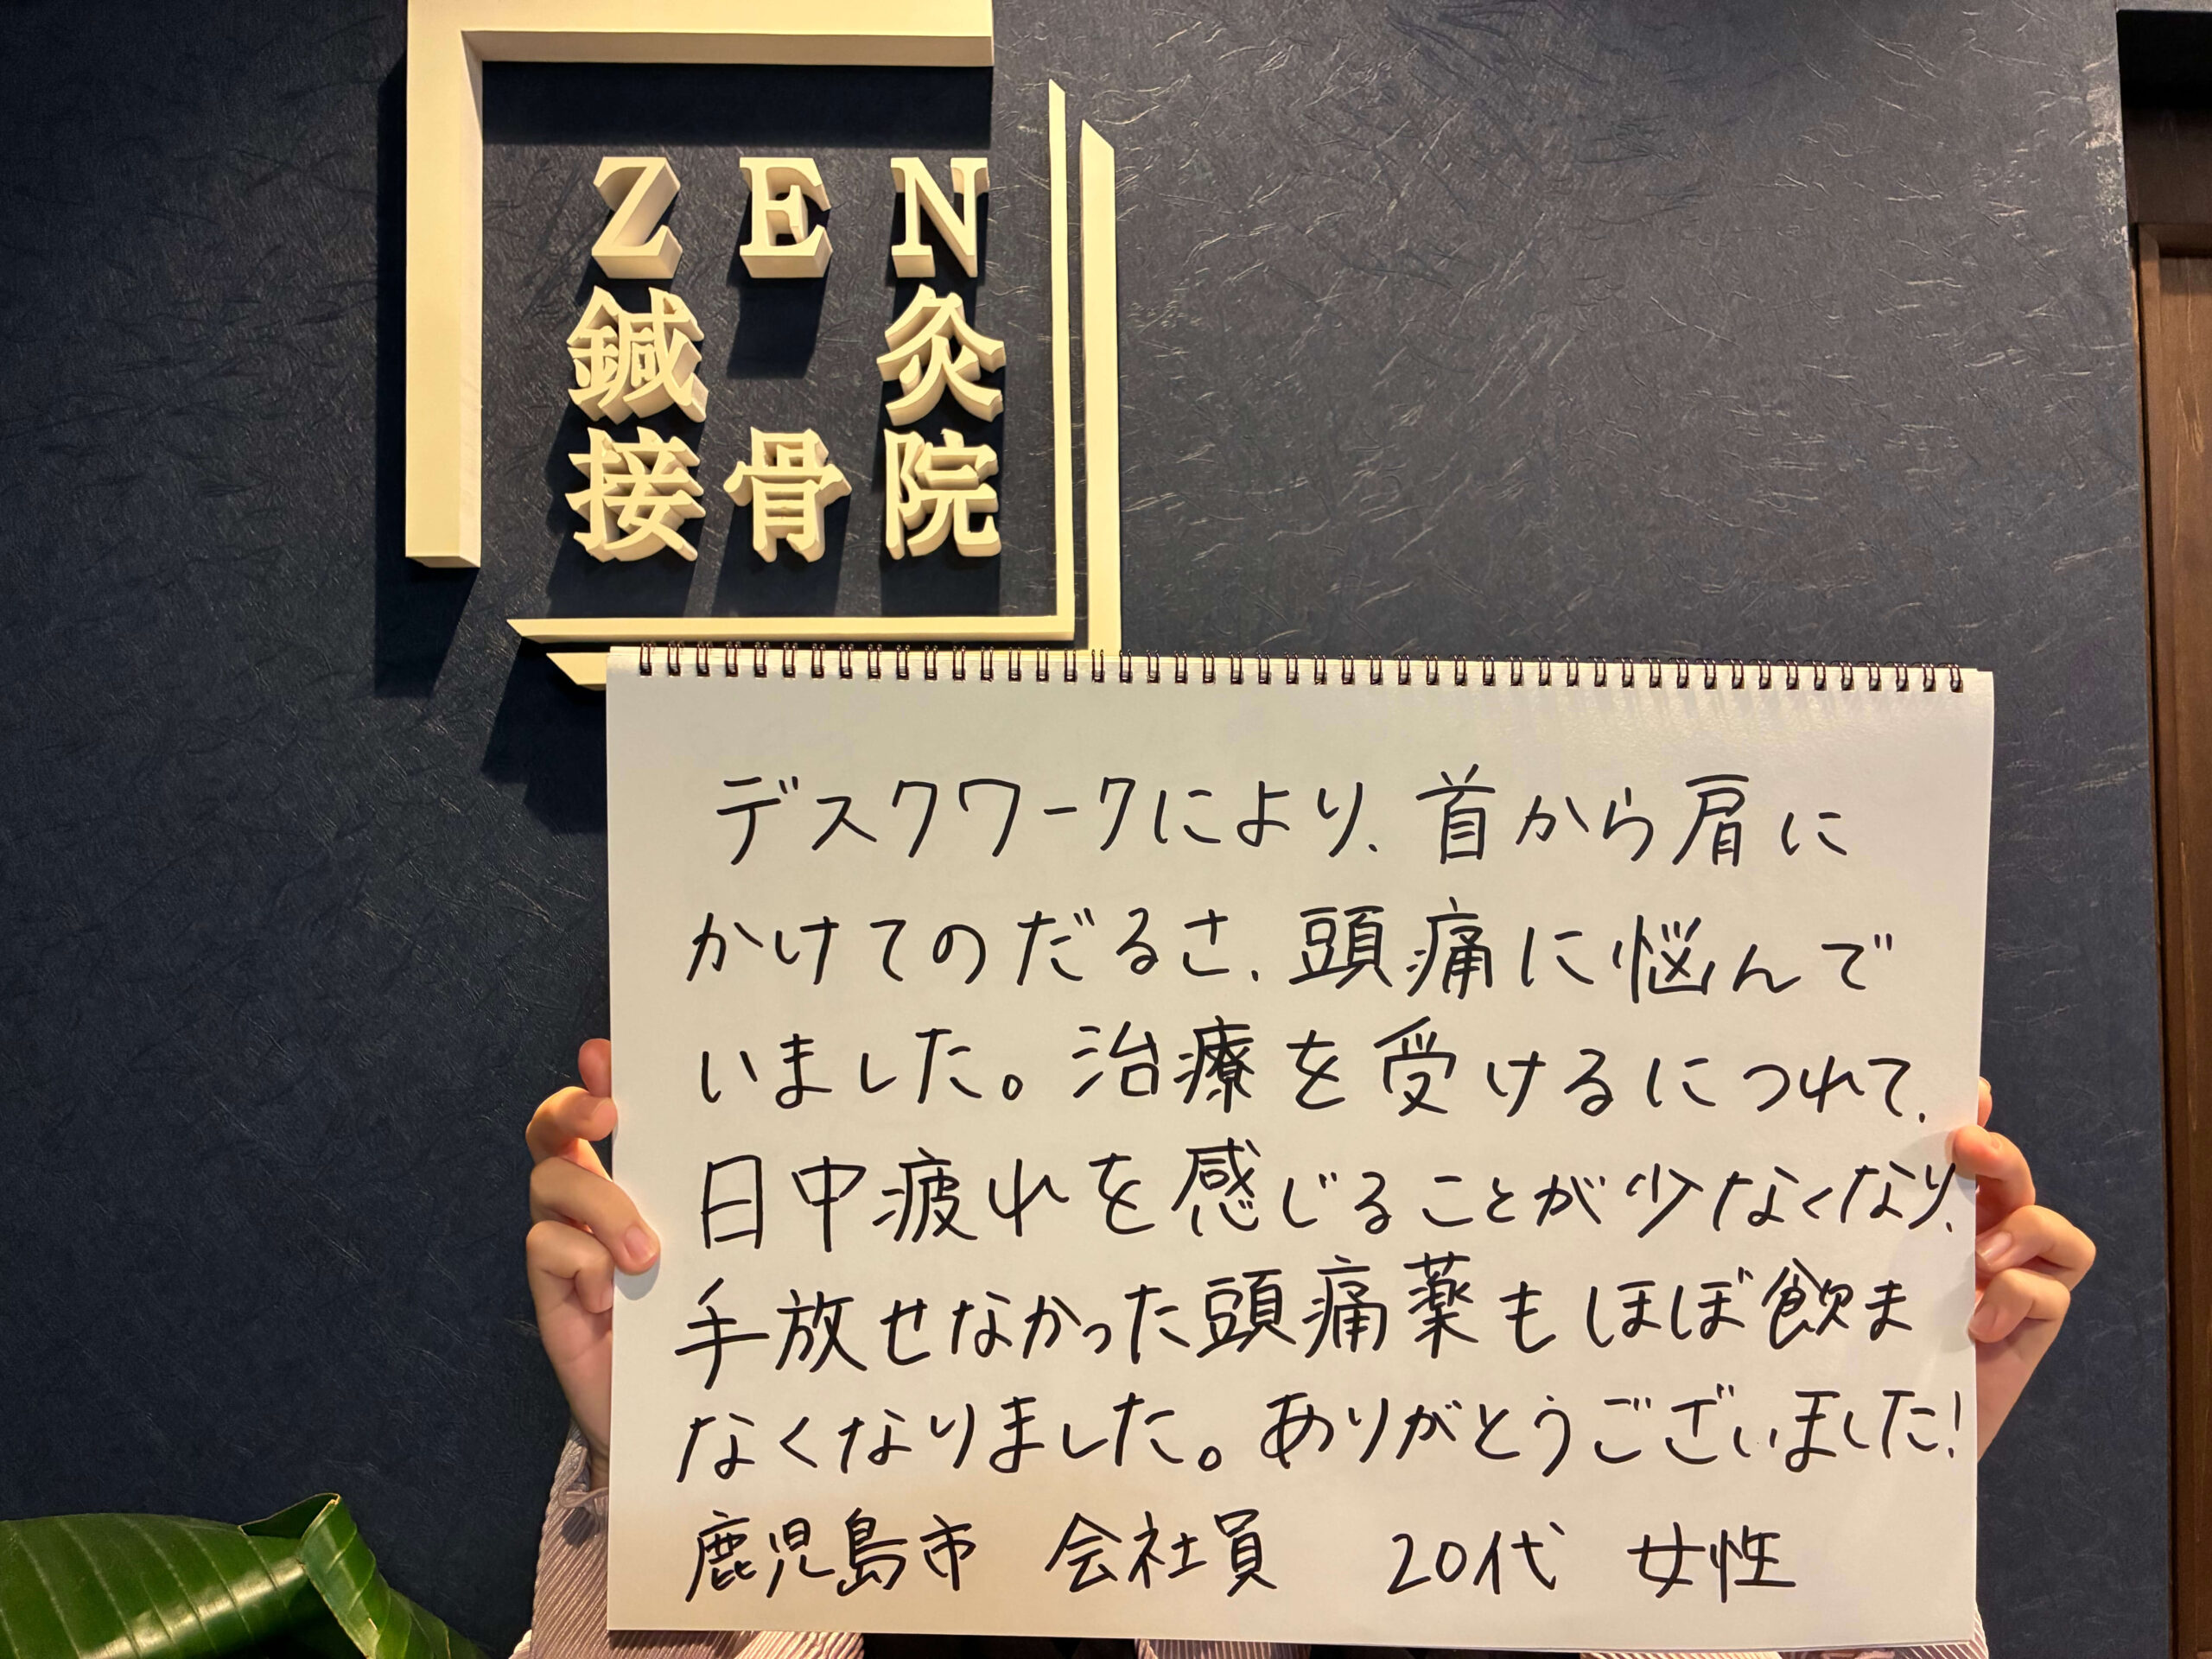 ZEN
鍼灸
接骨院
デスクワークにより、首から肩に
かけてのだるさ、頭痛に悩んで
いました。治療を受けるにつれて、
日中疲れを感じることが少なくなり、
手放せなかった頭痛薬もほぼ飲ま
なくなりました。ありがとうございました!
鹿児島市 会社員 20代 女性